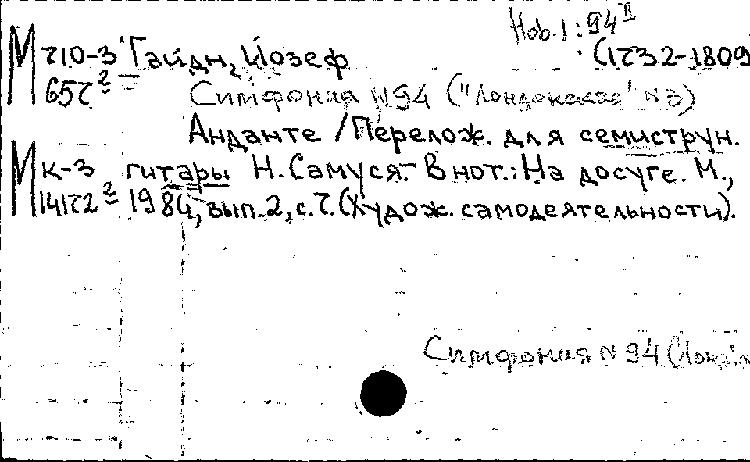 Hob. I : 94 II
М 710-3 Гайдн, Йозеф (1732-1809
657 2
Симфония N 94 ("Лондонская" N 3)
Анданте / Перелож. для семиструн.
М К-3 гитары Н. Самуся.- В нот.: На досуге. М.,
14172 2 1984, вып. 2, с. 7. (Худож. самодеятельности).
Симфония N 94